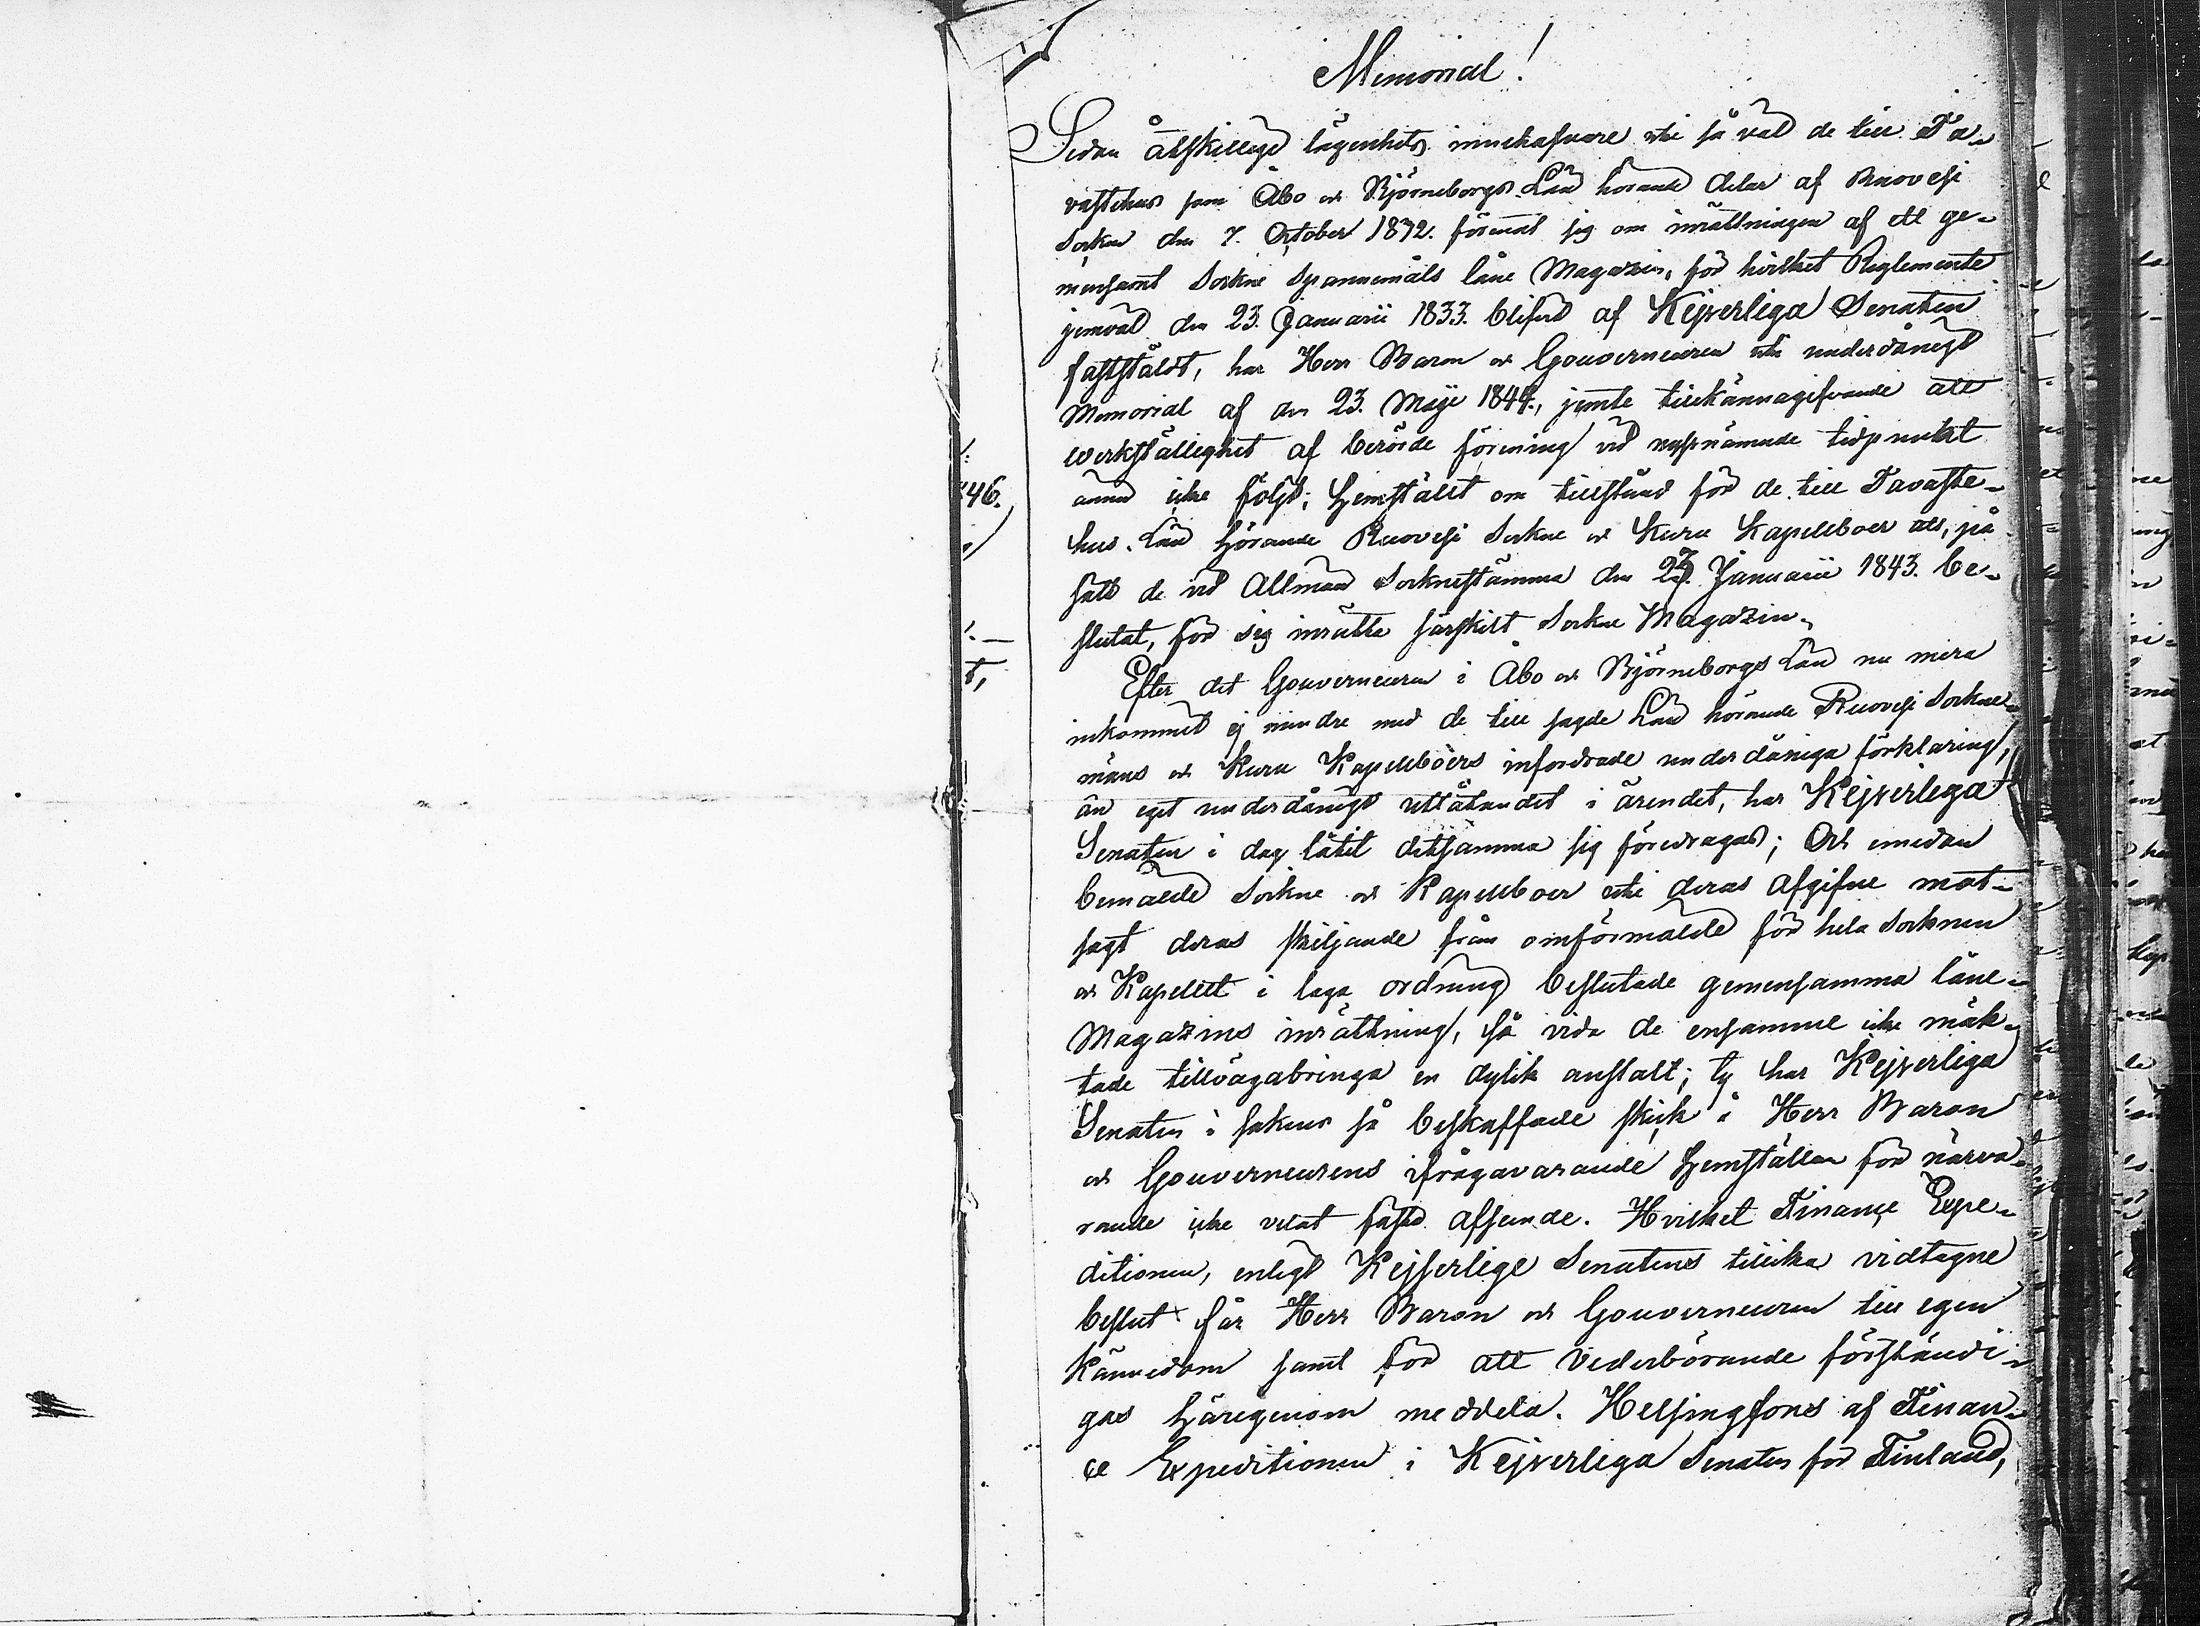 Memorial!
Sedan åtskillige lägenhets innehafvare uti så väl de till Ta-
vastehus som Åbo och Björneborgs Län hörande delar af Ruovesi
Socken den 7. October 1832. förenat sig om inrättningen af ett ge-
mensamt Sockne Spannemåls låne Magazin, för hvilket Reglemente
jemväl den 23. Januarii 1833. blifvit af Kejserliga Senaten
fastställdt, har Herr Baron och Gouverneuren uti underdånigt
Memorial af den 23. Maji 1844., jemte tillkännagifvande att
werkställighet af berörde förening vid nyssnämnde tidpunkt
ännu icke följt; hemställt om tillstånd för de till Tavaste-
hus Län hörande Ruovesi Sockne och Kuru Kapellboer att, på
sätt de vid Allmän Socknestämma den 27. Januarii 1843. be-
slutat, för sig inrätta särskilt Sockne Magazin.
Efter det Gouverneuren i Åbo och Björneborgs Län nu mera
inkommit ej mindre med de till sagde Län hörande Ruovesi Sockne-
mäns och Kuru Kapellboers infordrade underdåniga förklaring,
än eget underdånigt utlåtandet i ärendet, har Kejserliga
Senaten i dag låtit detsamma sig föredragas; Och emedan
bemälde Sockne och Kapellboer uti deras afgifne mot-
sagt deras skiljande från omförmälde för hela Socknen
och Kapellet i laga ordning beslutade gemensamma låne-
Magazins inrättning, så vida de ensamme icke mäk-
tade tillvägabringa en dylik anstalt; ty har Kejserliga
Senaten i sakens så beskaffade skick å Herr Baron
och Gouverneurens ifrågavarande hemställan för närva-
rande icke velat fästa afseende. Hvilket Finance Expe-
ditionen, enligt Kejserlige Senatens tillika vidtagne
beslut får Herr Baron och Gouverneuren till egen
kännedom samt för att Vederbörande förständi-
gas härigenom meddela. Helsingfors af Finan-
ce Expeditionen i Kejserliga Senaten för Finland,
46.
t,